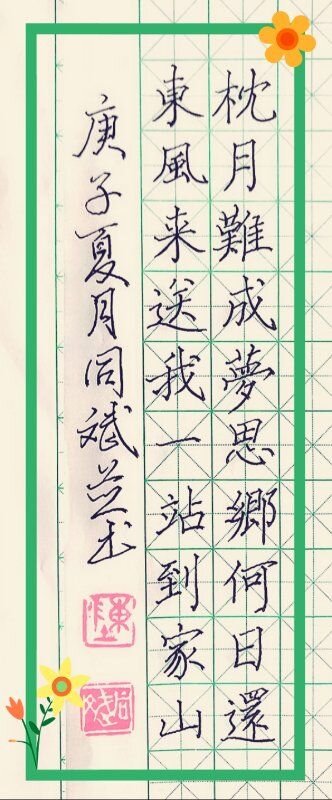 枕月難成夢思鄉何日還
東風来送我一站到家山
庚子夏月同斌並书